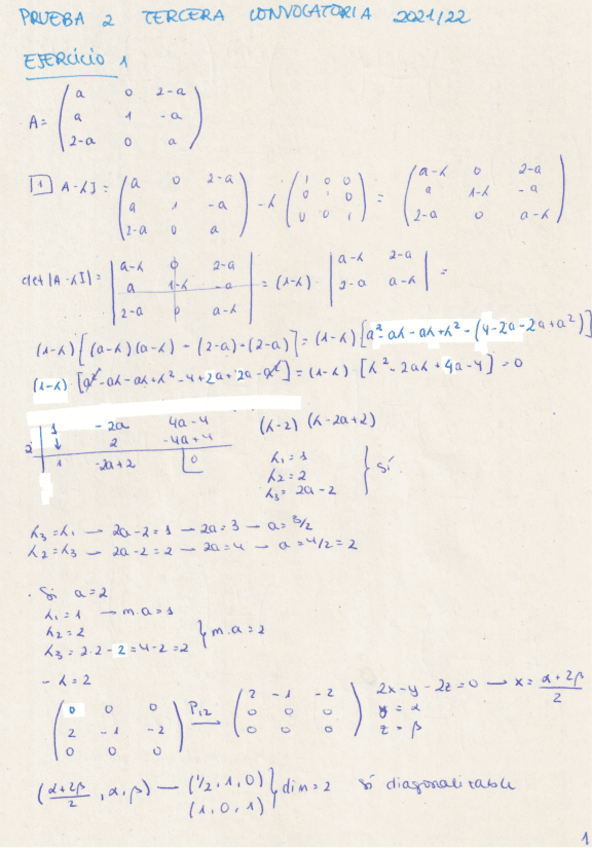 PRUEBA 2 TERCERA CONVOCATORIA 2021/22
EJERCICIO 1
A= ( a 0 2-a
a 1 -a
2-a 0 a )
1 A-λI = ( a 0 2-a
a 1 -a
2-a 0 a ) -λ ( 1 0 0
0 1 0
0 0 1 ) = ( a-λ 0 2-a
a 1-λ -a
2-a 0 a-λ )
det|A-λI| = | a-λ 0 2-a
a 1-λ -a
2-a 0 a-λ | = (1-λ) · | a-λ 2-a
2-a a-λ | =
(1-λ) [(a-λ)(a-λ) - (2-a)·(2-a)] = (1-λ) [a²-aλ-aλ+λ²-(4-2a-2a+a²)]
(1-λ) · [a²-aλ-aλ+λ²-4+2a+2a-a²] = (1-λ) · [λ²-2aλ+4a-4] = 0
1 -2a 4a-4 (λ-2) (λ-2a+2)
2 ↓ 2 -4a+4
1 -2a+2 0
λ₁=1
λ₂=2
λ₃= 2a-2
} sí.
λ₃=λ₁ — 2a-2=1 — 2a=3 — a=3/2
λ₂=λ₃ — 2a-2=2 — 2a=4 — a=4/2=2
· Si a=2
λ₁=1 — m.a=1
λ₂=2
λ₃=2·2-2=4-2=2
} m.a=2
- λ=2
( 0 0 0
2 -1 -2
0 0 0 ) P₁₂ → ( 2 -1 -2
0 0 0
0 0 0 )
2x-y-2z=0 → x= α+2β/2
y=α
z=β
(α+2β/2, α, β) — (1/2, 1, 0)
(1, 0, 1)
} dim=2 Sí diagonalizable
1